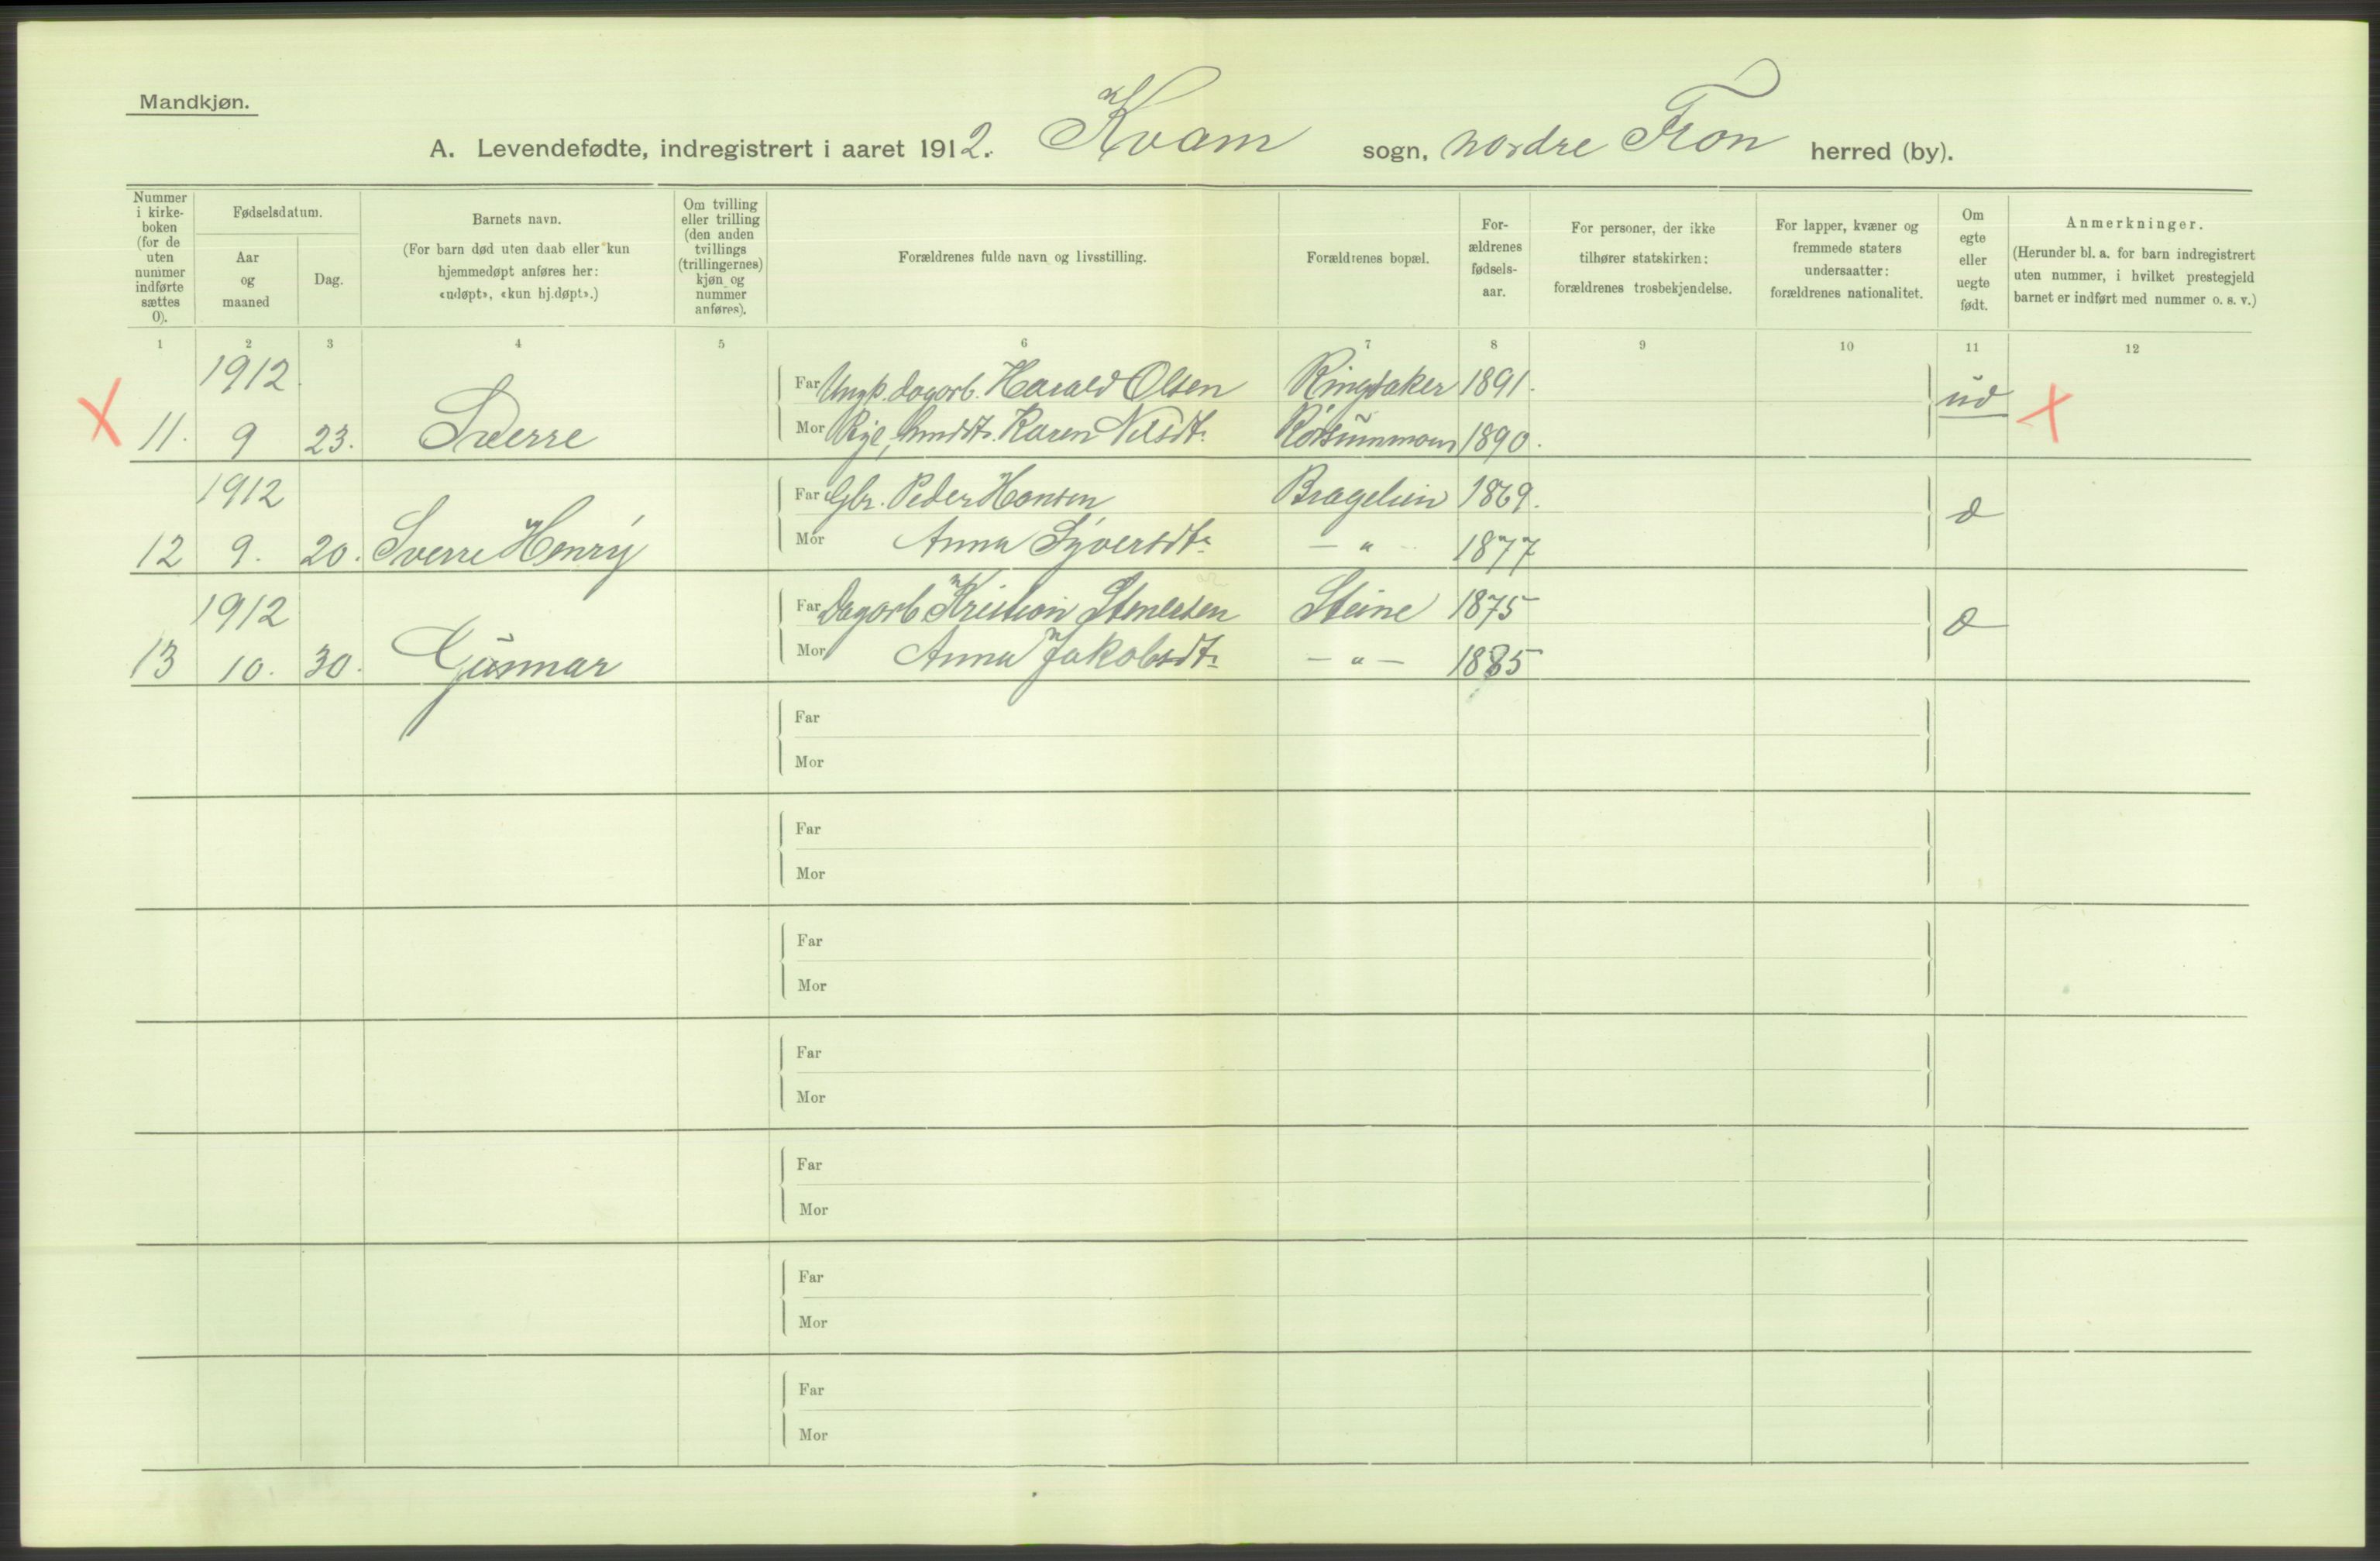 Mandkjøn.
A. Levendefødte, indregistrert i aaret 1912. Kvam sogn, nordre Fron herred (by).
Nummer i kirke- boken (for de uten nummer indførte sættes 0).
Fødselsdatum.
Aar og maaned
Dag.
Barnets navn.
(For barn død uten daab eller kun hjemmedøpt anføres her: «udøpt», «kun hj.døpt».)
Om tvilling eller trilling (den anden tvillings (trillingernes) kjøn og nummer anføres).
Forældrenes fulde navn og livsstilling.
Forældrenes bopæl.
For- ældrenes fødsels- aar.
For personer, der ikke tilhører statskirken: forældrenes trosbekjendelse.
For lapper, kvæner og fremmede staters undersaatter: forældrenes nationalitet.
Om egte eller uegte født.
Anmerkninger.
(Herunder bl. a. for barn indregistrert uten nummer, i hvilket prestegjeld barnet er indført med nummer o. s. v.)
1 2 3 4 5 6 7 8 9 10 11 12
1912 Far Ungk. dagarb. Harald Olsen Ringsaker 1891. ud
X 11. 9 23. Sverre Mor Karen Nilsdt. 1890. X
1912 Far Gbr. Peder Hansen Bragelien 1869.
12 9. 20. Sverre Henry Mor Anna Syversdt. — " — 1877
1912 Far Dagarb Kristian Stenersen Steine 1875
13 10. 30. Gunnar Mor Anna Jakobsdt. — " — 1885
Far
Mor
Far
Mor
Far
Mor
Far
Mor
Far
Mor
Far
Mor
Far
Mor